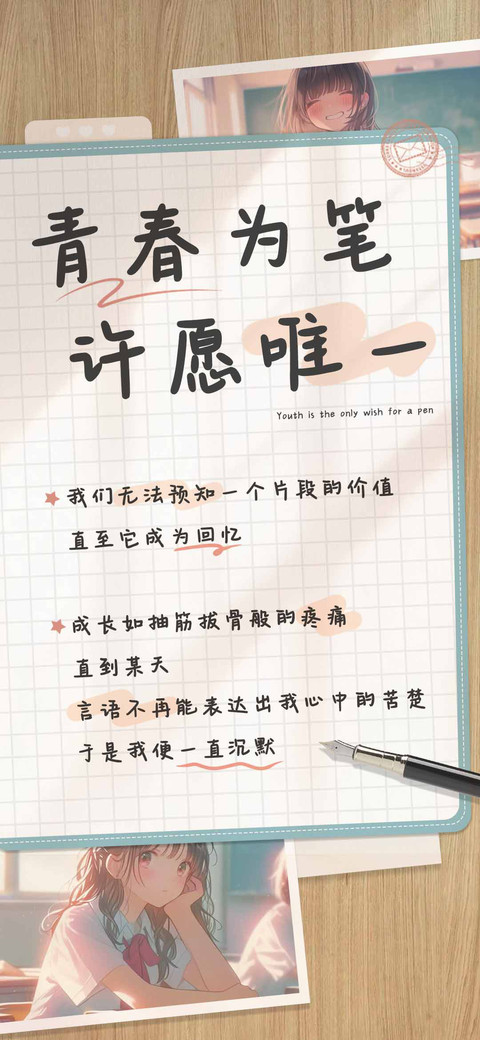 青春为笔
许愿唯一
Youth is the only wish for a pen
我们无法预知一个片段的价值
直至它成为回忆
成长如抽筋拔骨般的疼痛
直到某天
言语不再能表达出我心中的苦楚
于是我便一直沉默